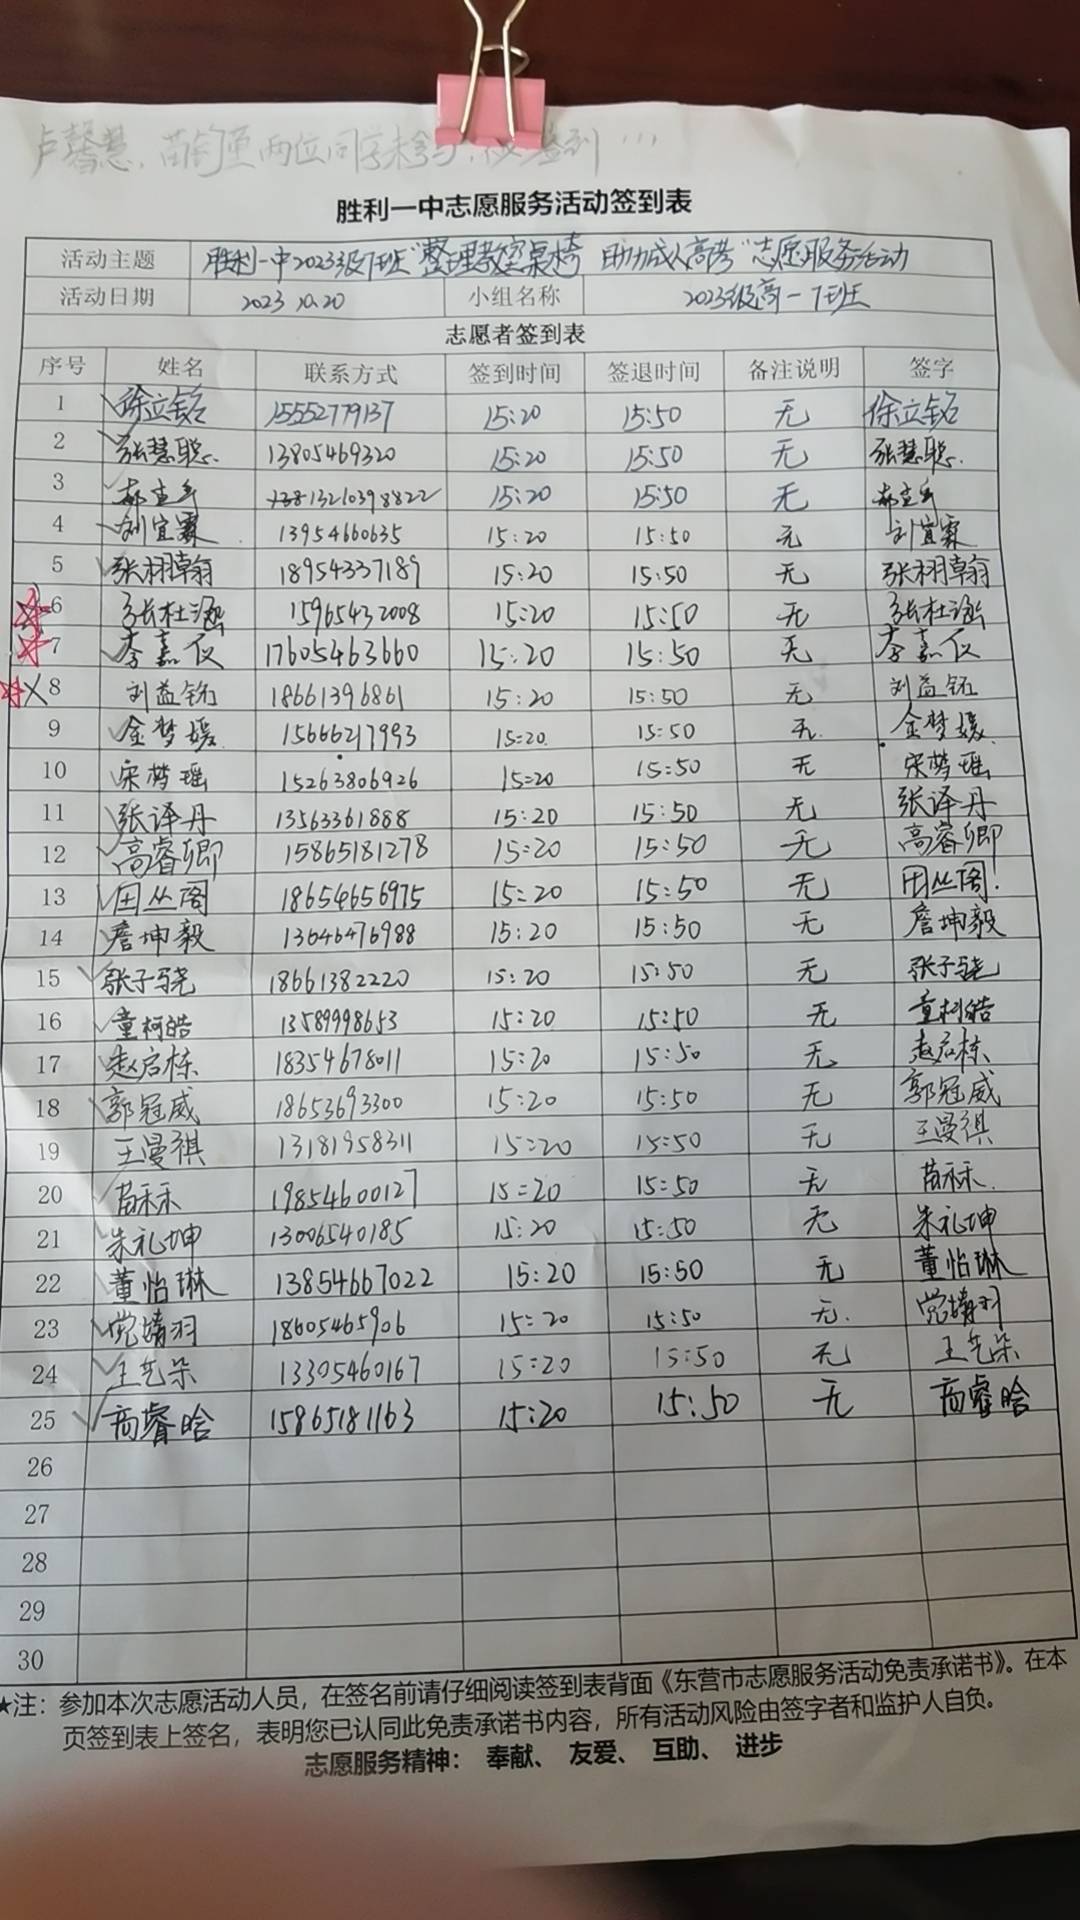 卢馨慧、苗钧 两位同学未参与，仅签到
胜利一中志愿服务活动签到表
活动主题 胜利一中2023级7班“整理教室桌椅 助力成人高考”志愿服务活动
活动日期 2023.10.20 小组名称 2023级高一7班
志愿者签到表
序号 姓名 联系方式 签到时间 签退时间 备注说明 签字
1 徐立铭 15552779137 15:20 15:50 无 徐立铭
2 张慧聪. 13805469320 15:20 15:50 无 张慧聪.
3 15:20 15:50 无
4 刘宜霖 13954660635 15:20 15:50 无 刘宜霖
5 张栩翰 18954337189 15:20 15:50 无 张栩翰
6 张杜涵 15965432008 15:20 15:50 无 张杜涵
7 李嘉仪 17605463660 15:20 15:50 无 李嘉仪
8 刘益铭 18661396861 15:20 15:50 无 刘益铭
9 金梦媛. 15666217993 15:20. 15:50 无. 金梦媛.
10 宋梦瑶 15263806926 15:20 15:50 无 宋梦瑶
11 张译丹 13563361888 15:20 15:50 无 张译丹
12 高睿卿 15865181278 15:20 15:50 无 高睿卿
13 田丛阁 18654656975 15:20 15:50 无 田丛阁!
14 詹坤毅 13646476988 15:20 15:50 无 詹坤毅
15 张子骁 18661382220 15:20 15:50 无 张子骁
16 童柯皓 13589998653 15:20 15:50 无 童柯皓
17 赵启栋 18354678011 15:20 15:50 无 赵启栋
18 郭冠威 18653693300 15:20 15:50 无 郭冠威
19 王曼祺 13181958311 15:20 15:50 无 王曼祺
20 苗禾禾 19854600127 15:20 15:50 无 苗禾禾.
21 朱礼坤 13006540185 15:20 15:50 无 朱礼坤
22 董怡琳 13854667022 15:20 15:50 无 董怡琳
23 党婧羽 18605465906 15:20 15:50 无. 党婧羽
24 王艺朵 13305460167 15:20 15:50 无 王艺朵
25 商睿晗 15865181163 15:20 15:50 无 商睿晗
26
27
28
29
30
★注：参加本次志愿活动人员，在签名前请仔细阅读签到表背面《东营市志愿服务活动免责承诺书》。在本
页签到表上签名，表明您已认同此免责承诺书内容，所有活动风险由签字者和监护人自负。
志愿服务精神： 奉献、 友爱、 互助、 进步